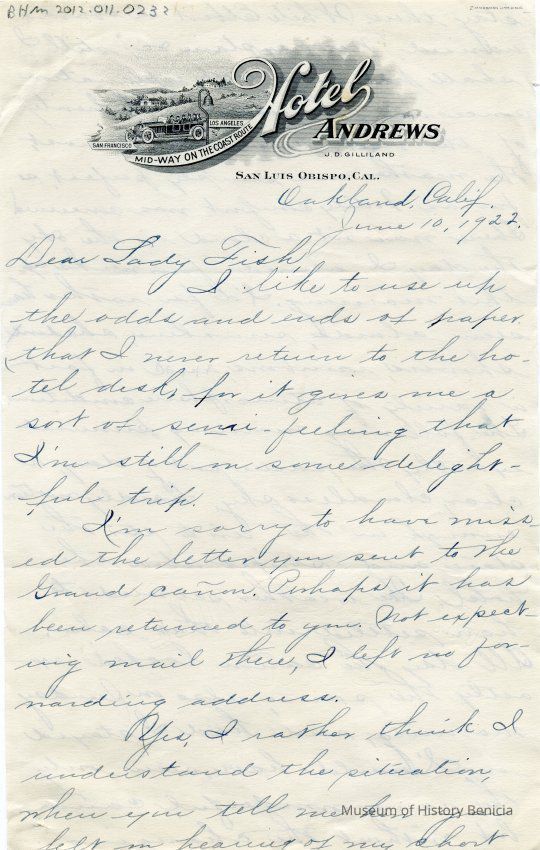 BHm 2012.011.0232
Hotel
ANDREWS
J. D. GILLILAND
SAN FRANCISCO
LOS ANGELES
MID-WAY ON THE COAST ROUTE
SAN LUIS OBISPO, CAL.
Oakland, Calif.
June 10, 1922.
Dear Lady Fish,
I like to use up
the odds and ends of paper
that I never return to the ho-
tel desk, for it gives me a
sort of semi-feeling that
I'm still on some delight-
ful trip.
I'm sorry to have miss-
ed the letter you sent to the
Grand Cañon. Perhaps it has
been returned to you. Not expect-
ing mail there, I left no for-
warding address.
Yes, I rather think I
understand the situation,
when you tell me how you
felt on hearing of my short
Museum of History Benicia